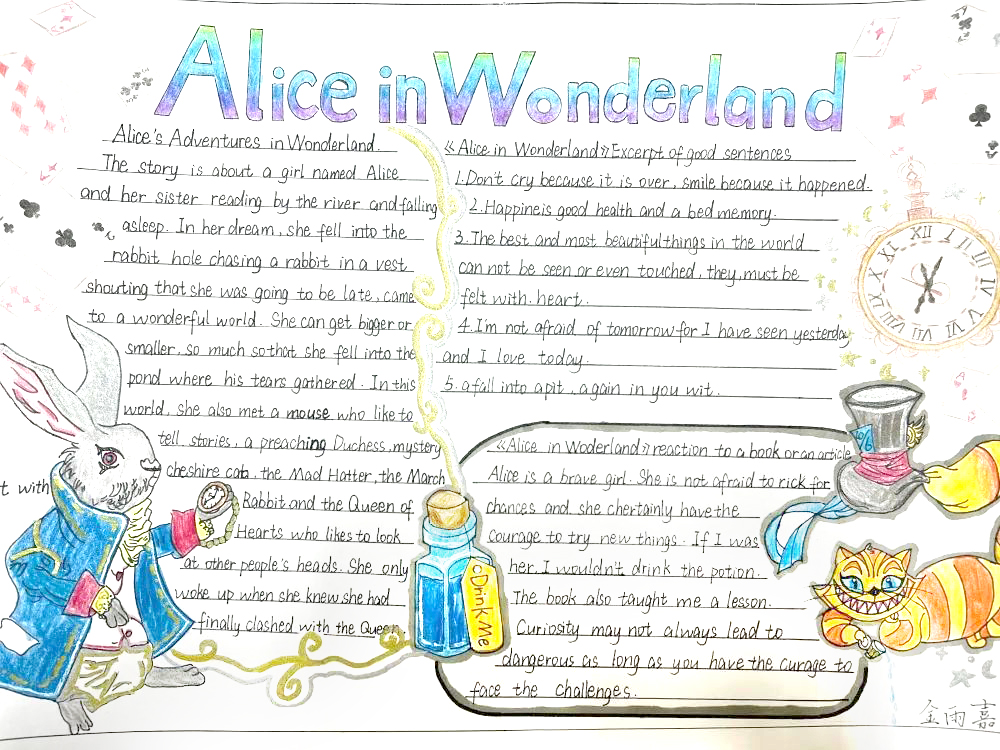 Alice in Wonderland
Alice's Adventures in Wonderland.
The story is about a girl named Alice
and her sister reading by the river and falling
asleep. In her dream, she fell into the
rabbit hole chasing a rabbit in a vest
shouting that she was going to be late, came
to a wonderful world. She can get bigger or
smaller, so much so that she fell into the
pond where his tears gathered. In this
world, she also met a mouse who like to
tell stories, a preaching Duchess, mystery
cheshire cat, the Mad Hatter, the March
Rabbit and the Queen of
Hearts who likes to look
at other people's heads. She only
woke up when she knew she had
finally clashed with the Queen
t with
《Alice in Wonderland》Excerpt of good sentences
1.Don't cry because it is over, smile because it happened.
2.Happineis good health and a bed memory.
3.The best and most beautiful things in the world
can not be seen or even touched, they must be
felt with heart.
4.I'm not afraid of tomorrow for I have seen yesterday
and I love today.
5.a fall into a pit, a gain in you wit.
《Alice in Woderland》reaction to a book or an article
Alice is a brave girl. She is not afraid to rick for
chances and she chertainly have the
courage to try new things. If I was
her, I wouldn't drink the potion.
The book also taught me a lesson.
Curiosity may not always lead to
dangerous as long as you have the curage to
face the challenges.
Drink Me
10/6
XII I II III IV V VI VII VIII IX X XI
金雨嘉